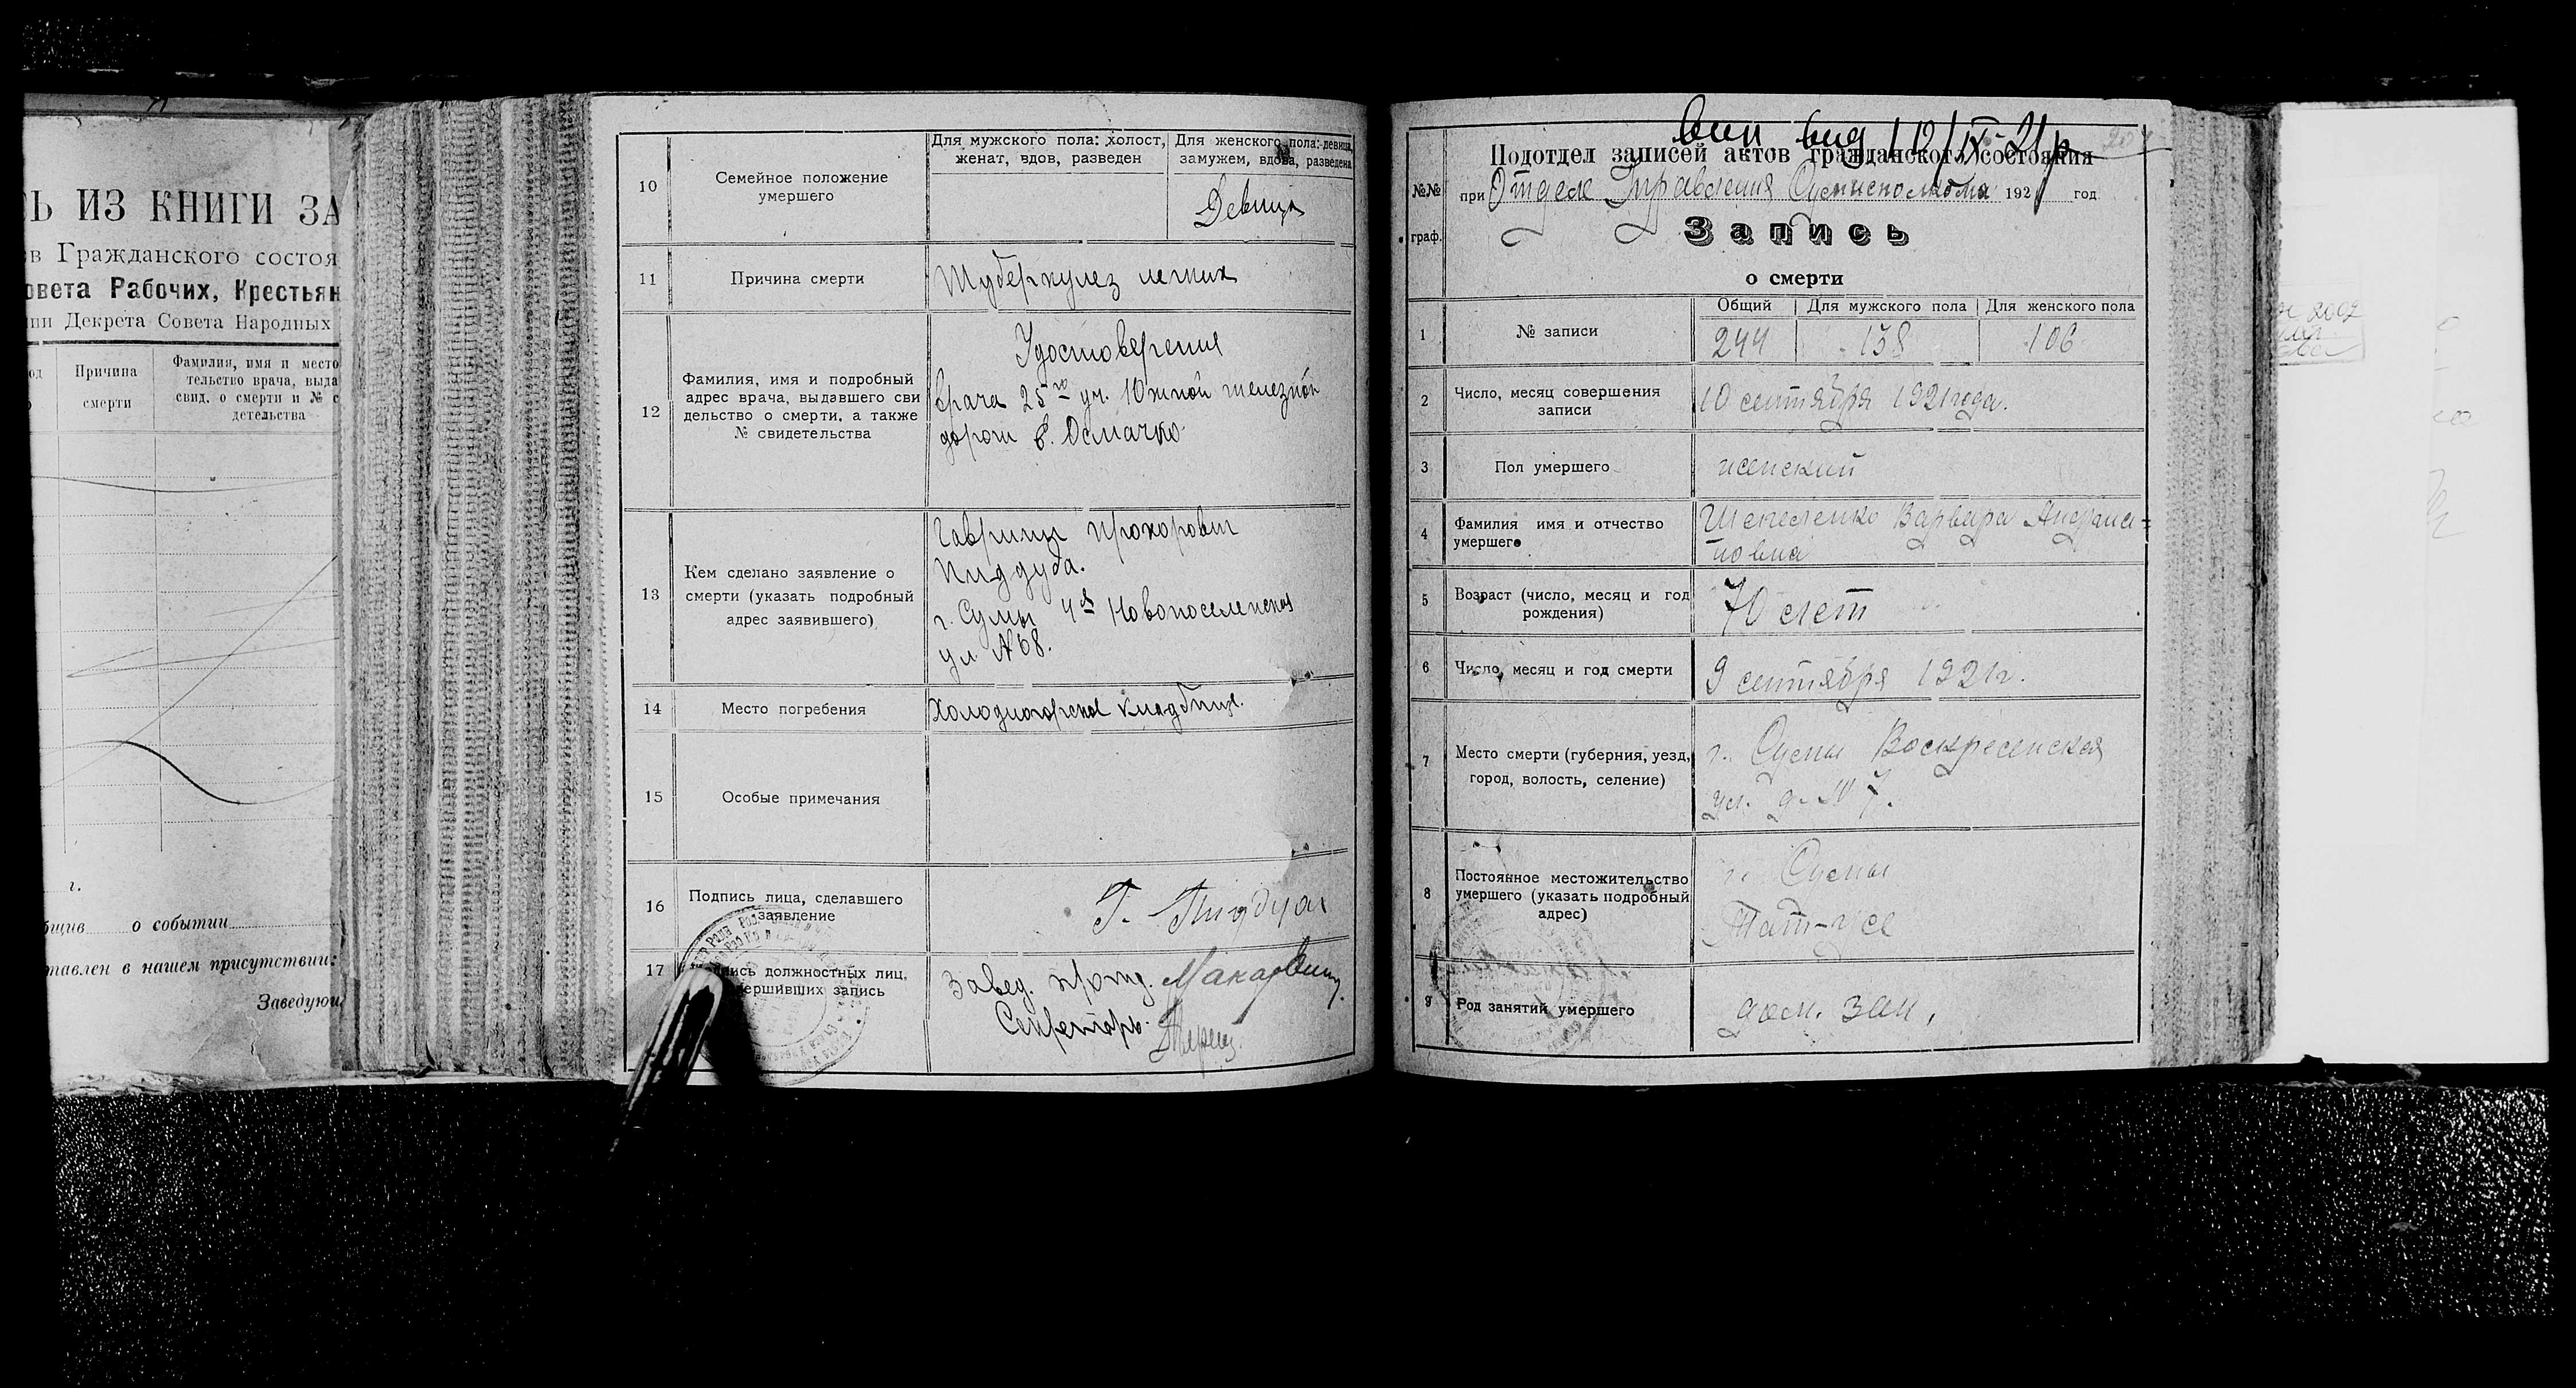 Ь ИЗ КНИГИ ЗА
в Гражданского состоя
овета Рабочих, Крестьян
ии Декрета Совета Народных
Причина
смерти
Фамилия, имя и место
тельство врача, выда
свид. о смерти и № с
детельства
г.
бщив о событии
тавлен в нашем присутствии:
Заведую
10
Семейное положение
умершего
Для мужского пола: холост,
женат, вдов, разведен
Для женского пола: девица,
замужем, вдова, разведена
Девица
11
Причина смерти
Туберкулез легких
12
Фамилия, имя и подробный
адрес врача, выдавшего сви
дельство о смерти, а также
№ свидетельства
Удостоверения
врача 25го уч. Южной железной
дороги в. Осмачко
13
Кем сделано заявление о
смерти (указать подробный
адрес заявившего)
Гавриил Прохорович
Пиддуба.
г. Сумы 4я Новопоселенская
ул. № 68.
14
Место погребения
Холодногорское кладбище.
15
Особые примечания
16
Подпись лица, сделавшего
заявление
Г.
17
должностных лиц,
ершивших запись
Завед. п/отд. Макаревич
Секретарь
вид 12/IX-21 р
Подотдел записей актов гражданского состояния
№№
граф.
при Отделе Управления Сумисполкома 1921 год
Запись
о смерти
1
№ записи
Общий
Для мужского пола
Для женского пола
244
138
106
2
Число, месяц совершения
записи
10 сентября 1921 года.
3
Пол умершего
женский
4
Фамилия имя и отчество
умершего
Шепеленко Варвара Андриа-
новна
5
Возраст (число, месяц и год
рождения)
70 лет
6
Число, месяц и год смерти
9 сентября 1921 г.
7
Место смерти (губерния, уезд,
город, волость, селение)
г. Сумы Воскресенская
ул. д. № 7.
8
Постоянное местожительство
умершего (указать подробный
адрес)
г. Сумы
Там-же
9
Род занятий умершего
дом. зан.